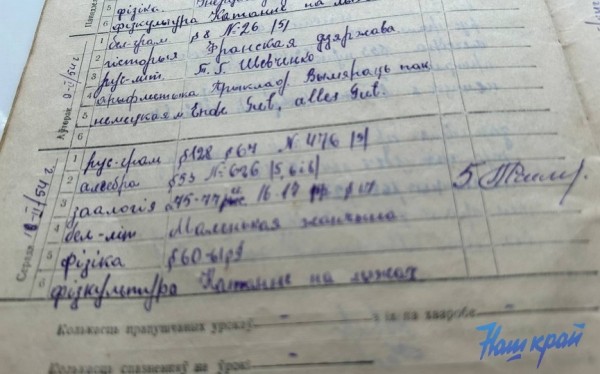 фізіка
фізкультура Катанне на лыжах
Аўторак 9-II/54 г.
1 бел-грам § 8 № 26 |5|
2 гісторыя Франская дзяржава
3 рус-літ Т. Г. Шевченко
4 арыфметыка Прыклад Вымяраць пак
5 нямецкая м Ende Gut, alles Gut.
6
Серада 10-II/54 г.
1 рус-грам § 128 § 67 № 476 |3|
2 алгебра § 53 № 626 |5, 6 і 8|
3 заалогія 16-17 5
4 бел-літ Маленькая жанчына
5 фізіка § 60
6 фізкультура Катанне на лыжах
Колькасць прапушчаных урокаў - з іх па хваробе -
Колькасць спазненняў на ўрокі -
Наш край